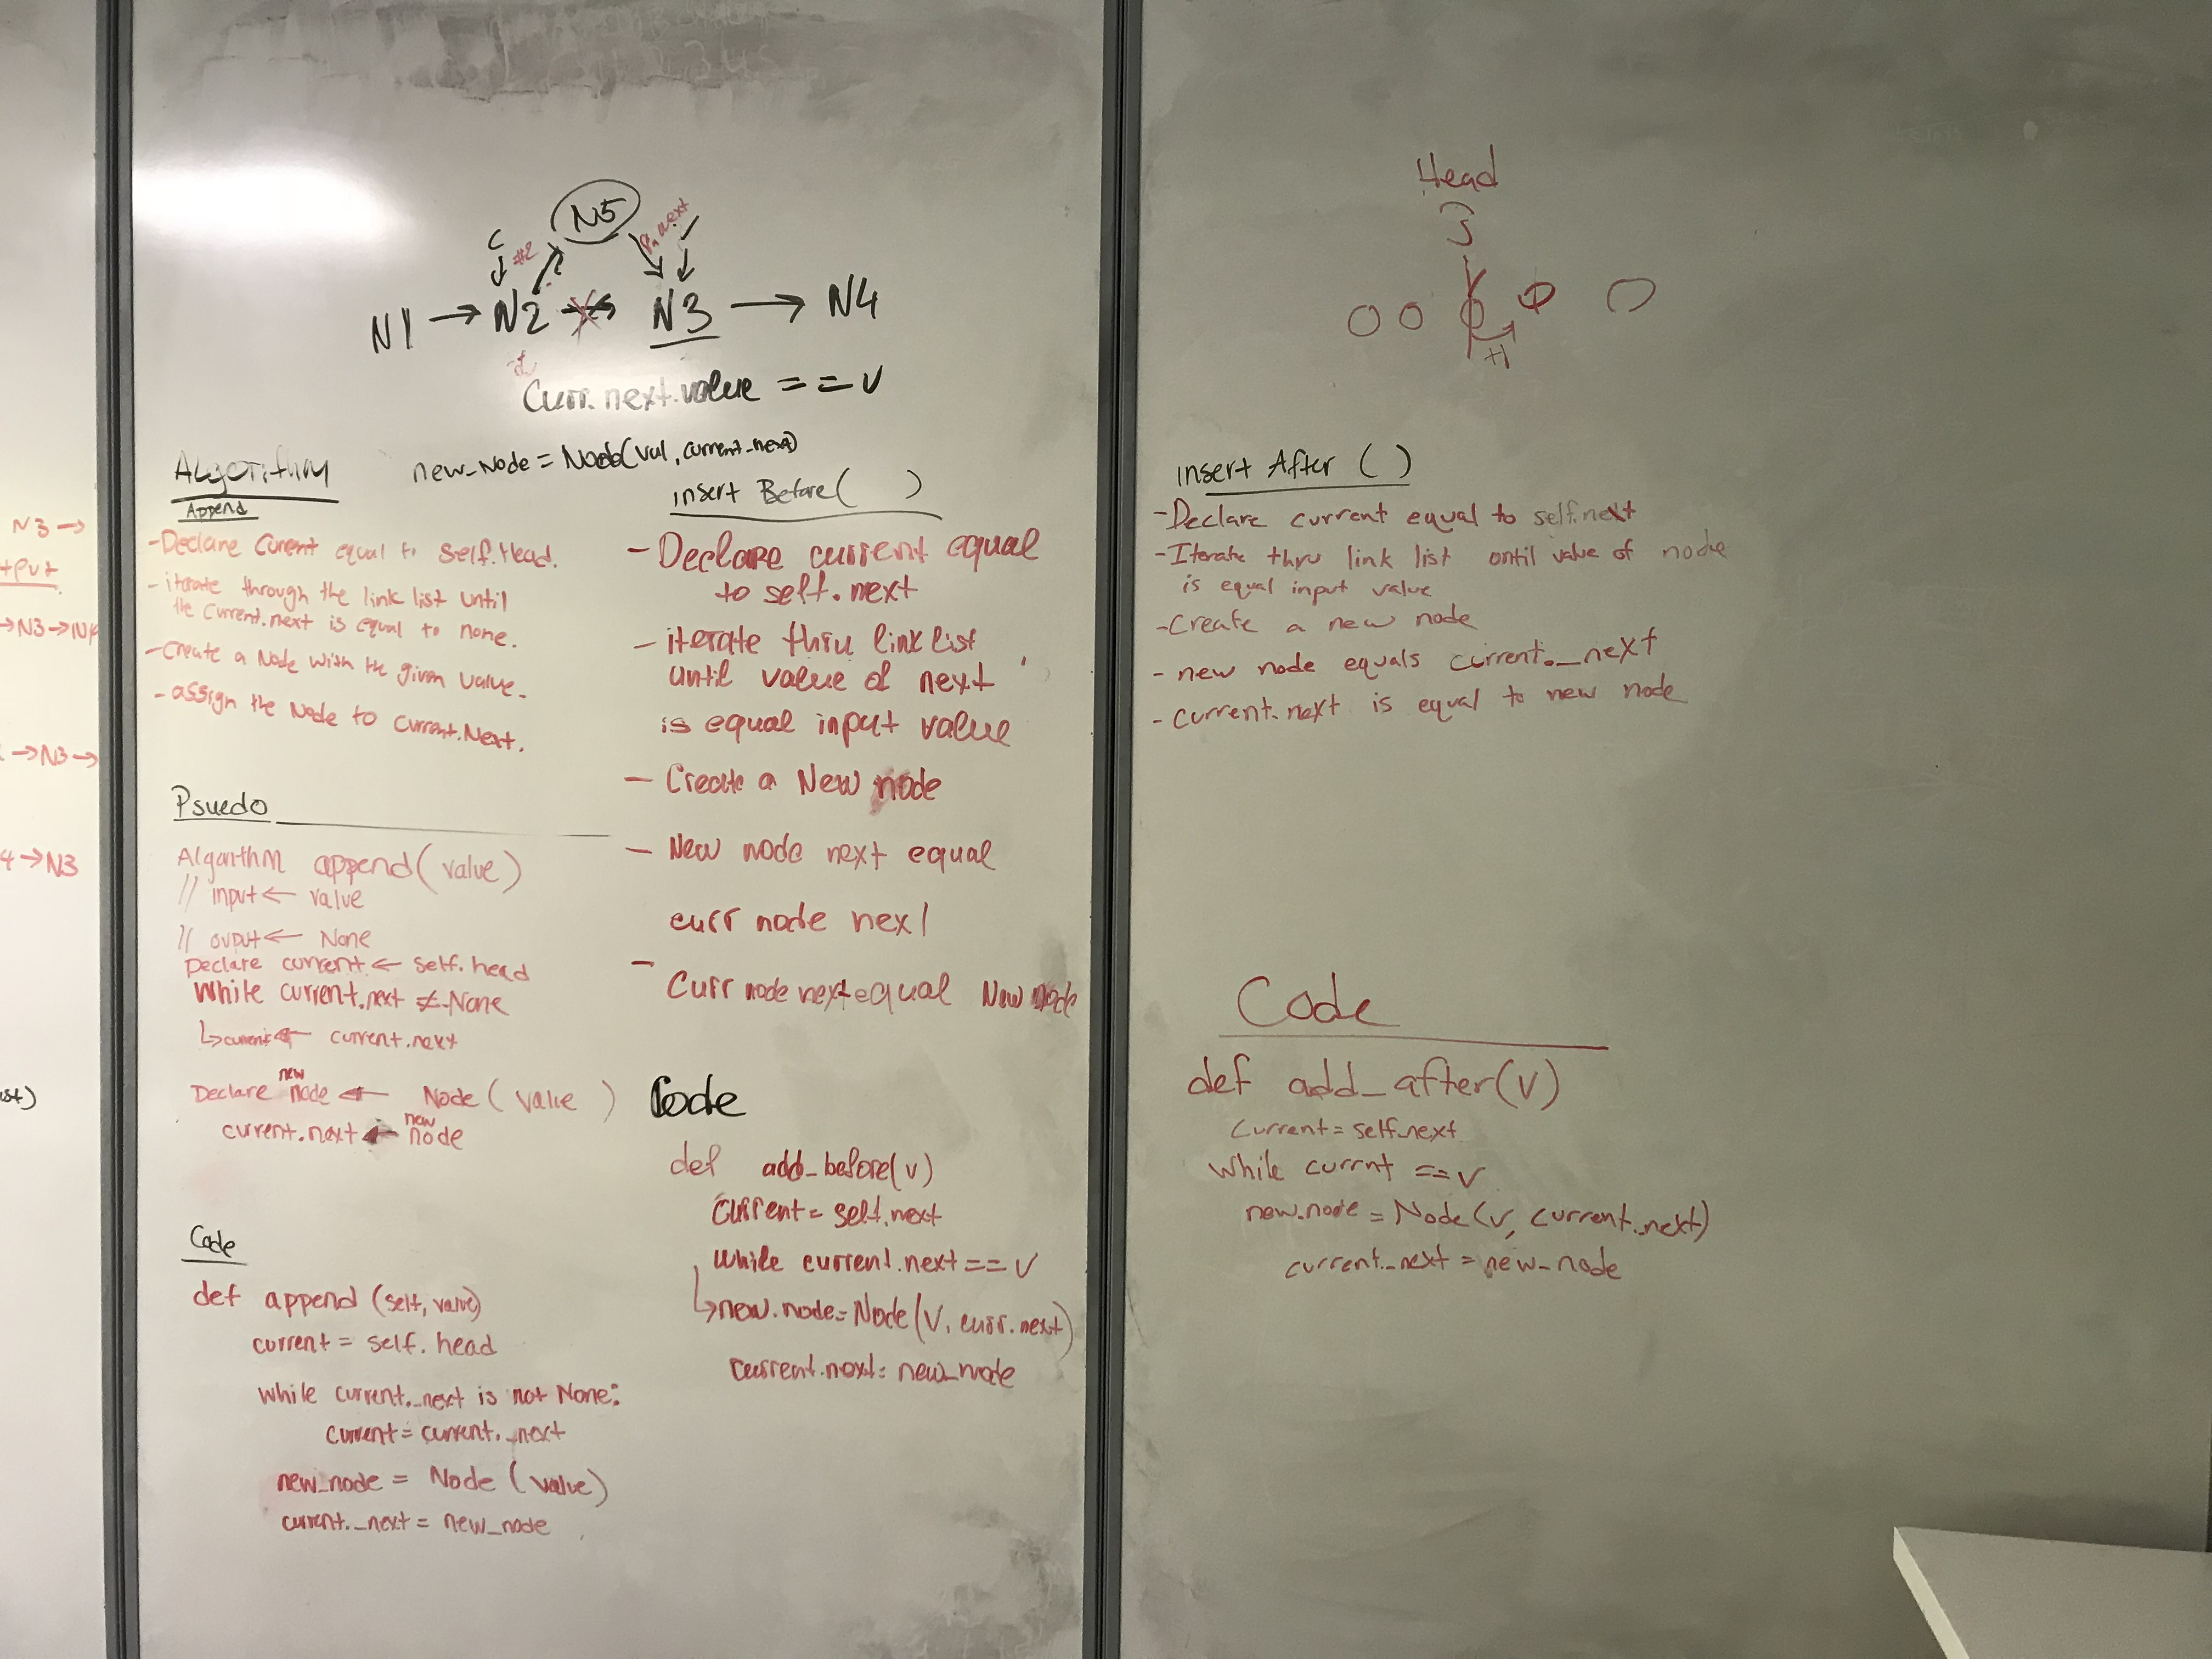 N3 →
tput
→N3→N4
→N3→
4 →N3
st)
N5
C
#2
N1 → N2 N3 → N4
Curr.next.value == v
Algorithm
new_Node = Node(val, current_next)
Append
-Declare Current equal to self.Head.
- iterate through the link list until
the Current.next is equal to none.
-Create a Node with the given value.
- assign the Node to Current.Next.
Psuedo
Algorithm append(value)
// input ← value
// ouput ← None
Declare current ← self.head
While current.next ≠ None
↳current ← current.next
Declare new node ← Node(value)
current.next ← new node
Code
def append (self, value)
current = self.head
while current._next is not None:
current = current._next
new_node = Node (value)
current._next = new_node
insert Before( )
- Declare current equal
to self.next
- iterate thru link list
until value of next
is equal input value
- Create a New node
- New node next equal
curr node next
- Curr node next equal New Node
Code
def add_before(v)
Current = self.next
While current.next == v
↳new.node = Node(v, curr.next)
current.next = new_node
Head
+1
insert After ( )
-Declare current equal to self.next
-Iterate thru link list until value of node
is equal input value
-Create a new node
- new node equals current._next
- current.next is equal to new node
Code
def add_after(v)
Current = self_next
While currnt == v
new.node = Node(v, current._next)
current._next = new_node